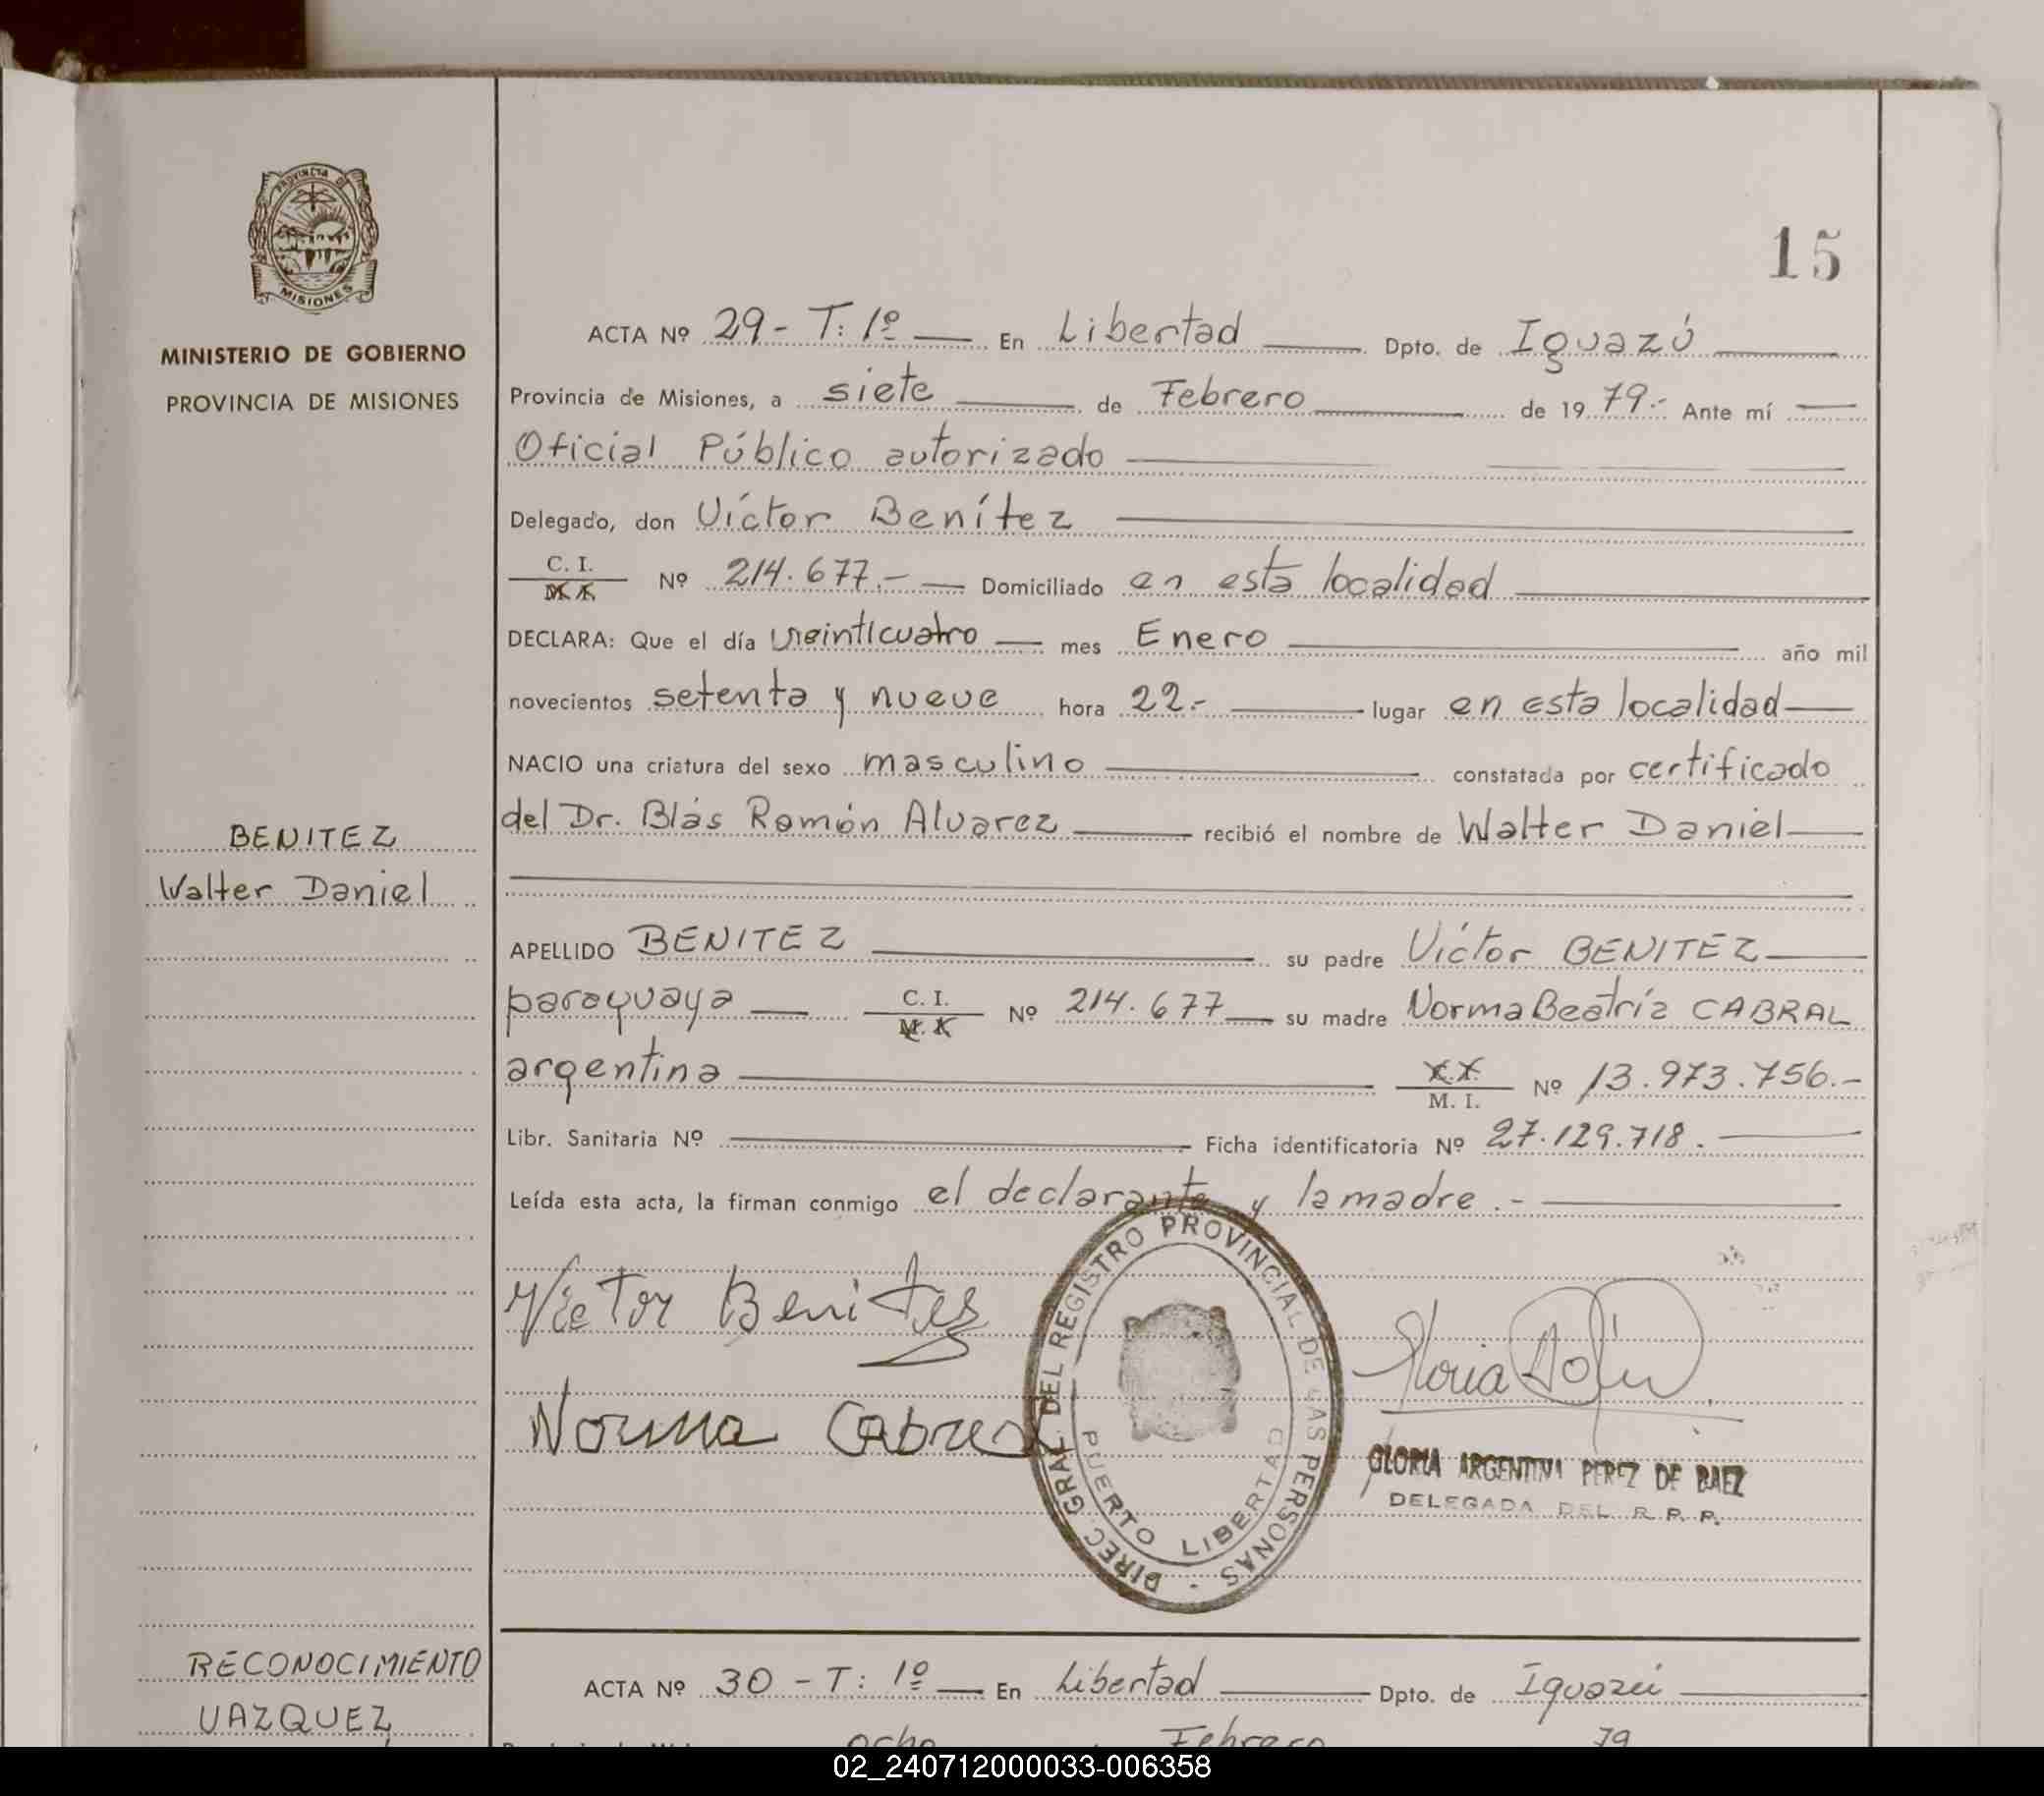 PROVINCIA DE
MISIONES
MINISTERIO DE GOBIERNO
PROVINCIA DE MISIONES
15
ACTA Nº 29 - T: 1º En Libertad Dpto. de Iguazú
Provincia de Misiones, a siete de Febrero de 19 79.- Ante mí
Oficial Público autorizado
Delegado, don Víctor Benítez
C. I. Nº 214.677.- Domiciliado en esta localidad
DECLARA: Que el día veinticuatro mes Enero año mil
novecientos setenta y nueve hora 22.- lugar en esta localidad
NACIO una criatura del sexo masculino constatada por certificado
del Dr. Blás Ramón Alvarez recibió el nombre de Walter Daniel
BENITEZ
Walter Daniel
APELLIDO BENITEZ su padre Víctor BENITEZ
paraguaya C. I. Nº 214.677 su madre Norma Beatríz CABRAL
argentina M. I. Nº 13.973.756.-
Libr. Sanitaria Nº Ficha identificatoria Nº 27.129.718.
Leída esta acta, la firman conmigo el declarante y la madre.-
Victor Benitez
Norma Cabral
DIREC. GRAL. DEL REGISTRO PROVINCIAL DE LAS PERSONAS
PUERTO LIBERTAD
Gloria
GLORIA ARGENTINA PEREZ DE BAEZ
DELEGADA DEL R. P. P.
RECONOCIMIENTO
VAZQUEZ
ACTA Nº 30 - T: 1º En Libertad Dpto. de Iguazú
ocho Febrero 79
02_240712000033-006358